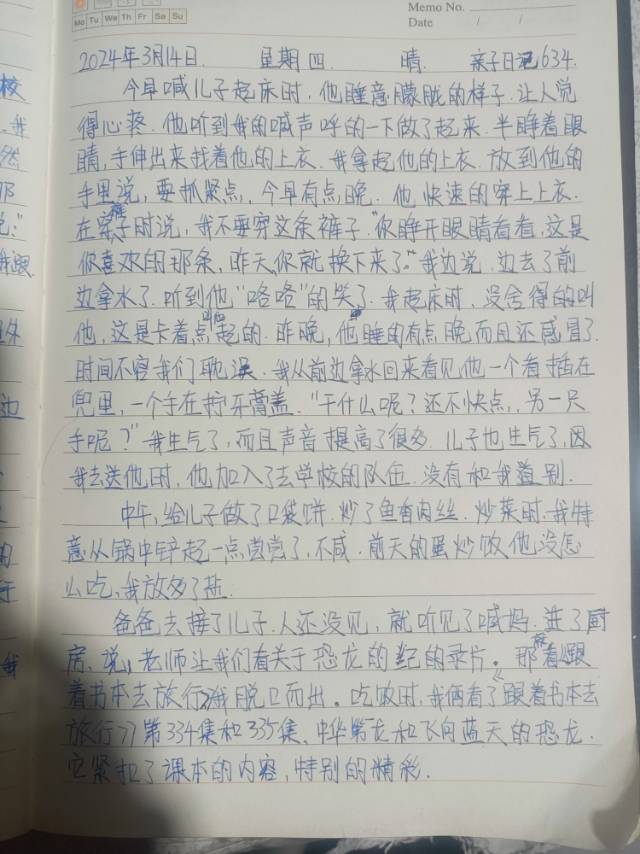 Memo No.
Mo Tu We Th Fr Sa Su
Date / /
2024年3月14日. 星期四 晴. 亲子日记634.
今早喊儿子起床时,他睡意朦胧的样子.让人觉
得心疼.他听到我的喊声呼的一下做了起来.半睁着眼
睛,手伸出来找着他的上衣.我拿起他的上衣.放到他的
手里说,要抓紧点,今早有点晚.他快速的穿上上衣.
在穿裤子时说,我不要穿这条裤子."你睁开眼睛看看,这是
你喜欢的那条,昨天你就换下来了."我边说,边去了前
边拿水了.听到他"咯咯"的笑了.我起床时,没舍得的叫
他,这是卡着点叫起的.昨晚,他睡的有点晚而且还感冒了.
时间不容我们耽误.我从前边拿水回来看见他一个看插在
兜里,一个手在拧牙膏盖."干什么呢?还不快点,另一只
手呢?"我生气了,而且声音提高了很多.儿子也生气了,因
我去送他时,他加入了去学校的队伍.没有和我道别.
中午,给儿子做了口袋饼.炒了鱼香肉丝.炒菜时.我特
意从锅中铲起一点尝尝了,不咸.前天的蛋炒饭他没怎
么吃,我放多了盐.
爸爸去接了儿子.人还没见,就听见了喊妈.进了厨
房,说,老师让我们看关于恐龙的纪的录片。那看《跟
着书本去旅行》我脱口而出。吃饭时,我俩看了《跟着书本去
旅行》第334集和335集、中华第一龙和飞向蓝天的恐龙.
它紧扣了课本的内容,特别的精彩.
校
我
然
那
说:"
我跟
边
的
于
我